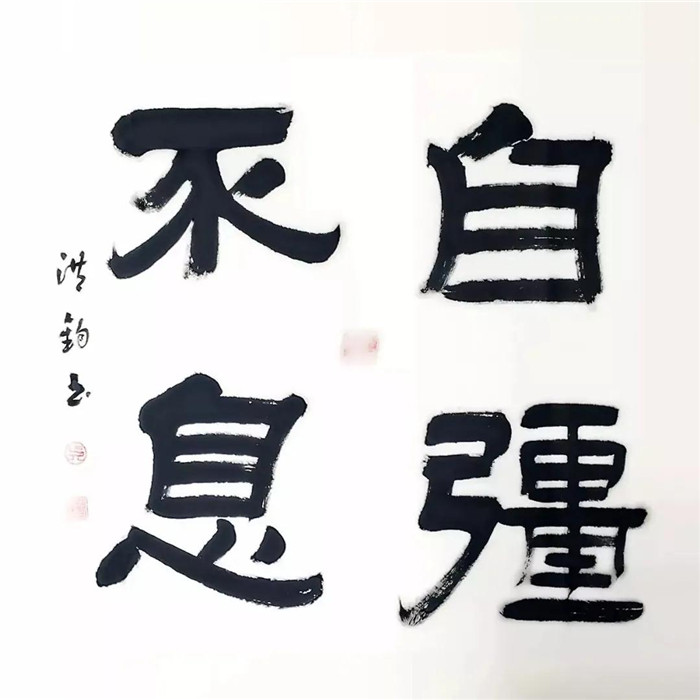 自彊
不息
洪鈞书